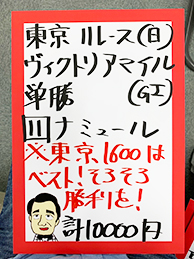 東京11レース(日)
ヴィクトリアマイル
単勝 (GI)
川ナミュール
※東京1600は
ベスト!そろそろ
勝利を!
計10000円